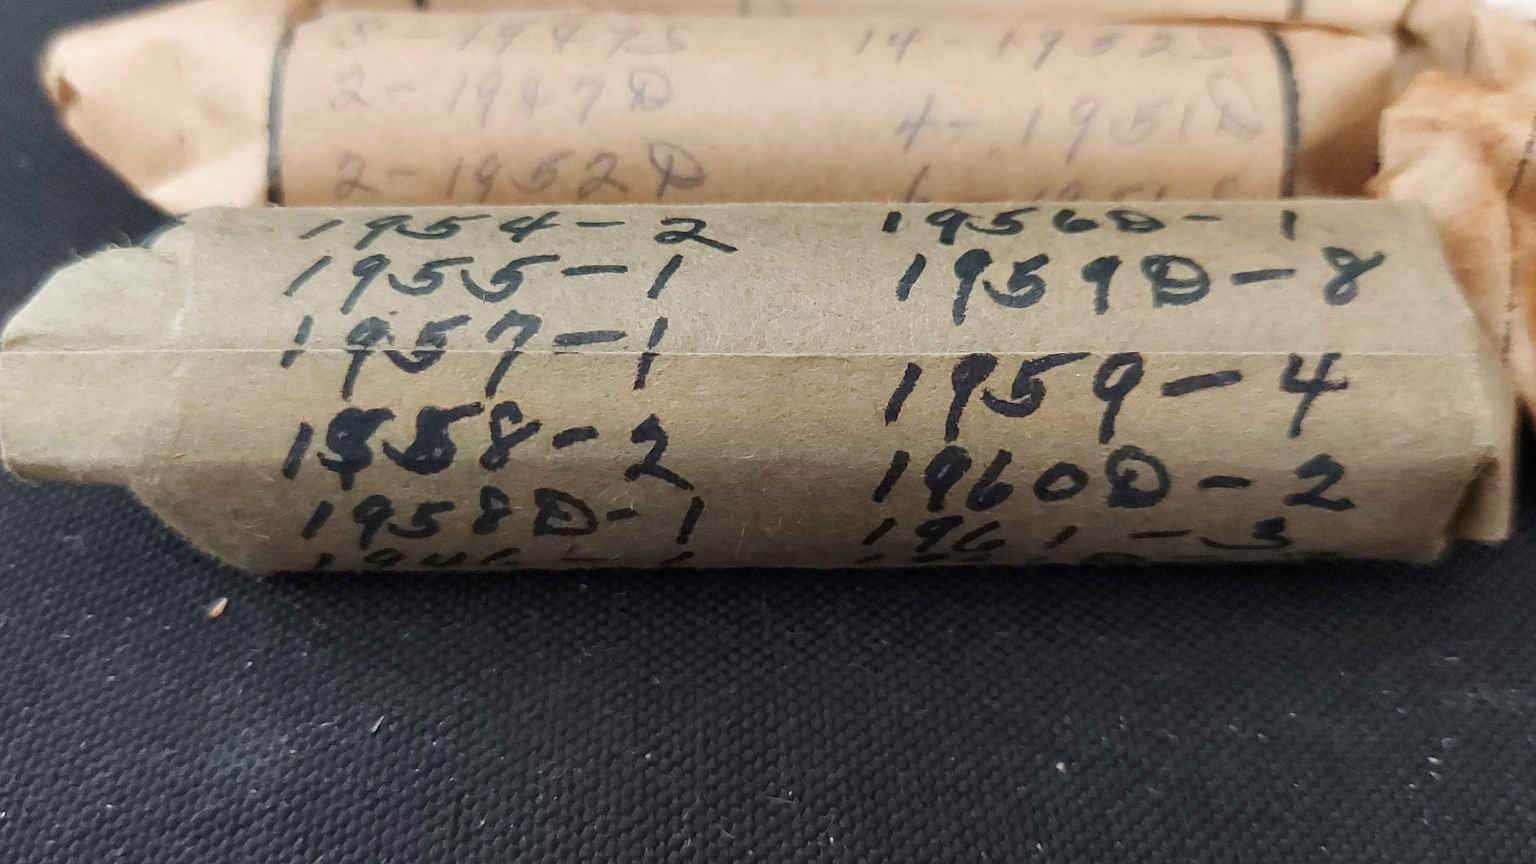 5 - 1947S
14 - 1952S
2 - 1947D
4 - 1951D
2 - 1952D
1954 - 2
1955 - 1
1957 - 1
1958 - 2
1958D - 1
1956D - 1
1959D - 8
1959 - 4
1960D - 2
1961 - 3